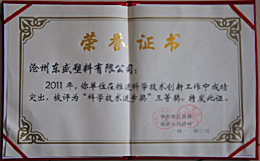 荣誉证书
沧州东盛塑料有限公司：
2011年，你单位在推进科学技术创新工作中成绩
突出，被评为“科学技术进步奖”三等奖。特发此证。